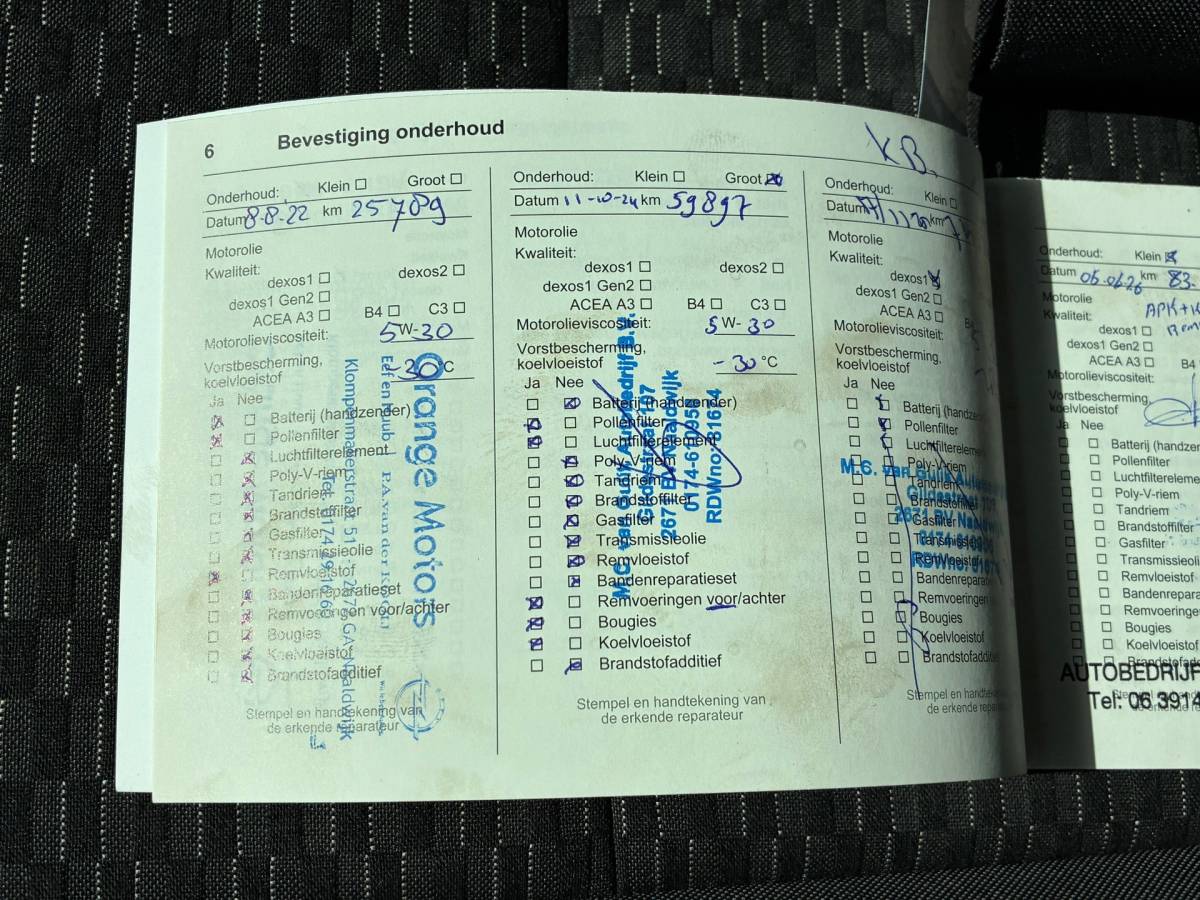 6 Bevestiging onderhoud
KB.
Onderhoud: Klein Groot
Datum 8-8-22 km 25789
Motorolie
Kwaliteit:
dexos1 dexos2
dexos1 Gen2
ACEA A3 B4 C3
Motorolieviscositeit:
5W-30
Vorstbescherming,
koelvloeistof -30°C
Ja Nee
Batterij (handzender)
Pollenfilter
Luchtfilterelement
Poly-V-riem
Tandriem
Brandstoffilter
Gasfilter
Transmissieolie
Remvloeistof
Bandenreparatieset
Remvoeringen voor/achter
Bougies
Koelvloeistof
Brandstofadditief
Stempel en handtekening van
de erkende reparateur
Orange Motors
P.A. van der
Klompenmakerstraat 51 - 2672 GA Naaldwijk
Onderhoud: Klein Groot
Datum 11-10-24 km 59897
Motorolie
Kwaliteit:
dexos1 dexos2
dexos1 Gen2
ACEA A3 B4 C3
Motorolieviscositeit: 5W-30
Vorstbescherming,
koelvloeistof -30°C
Ja Nee
Batterij (handzender)
Pollenfilter
Luchtfilterelement
Poly-V-riem
Tandriem
Brandstoffilter
Gasfilter
Transmissieolie
Remvloeistof
Bandenreparatieset
Remvoeringen voor/achter
Bougies
Koelvloeistof
Brandstofadditief
Stempel en handtekening van
de erkende reparateur
M.G. van Gulik Autobedrijf B.V.
Naaldwijk
Onderhoud: Klein
Datum km
Motorolie
Kwaliteit:
dexos1
dexos1 Gen2
ACEA A3
Motorolieviscositeit:
Vorstbescherming,
koelvloeistof
Ja Nee
Batterij
Pollenfilter
Luchtfilterelem
Poly-V-riem
Tandriem
Brandstoffilter
Gasfilter
Transmissie
Remvloeist
Bandenrepara
Remvoeringen
Bougies
Koelvloeistof
Brandstofadd
Stempel en handteken
de erkende repara
M.G. van Gulik
Onderhoud: Klein
Datum km 83.
Motorolie
Kwaliteit:
APK+
dexos1
dexos1 Gen2
ACEA A3 B4
Motorolieviscositeit
Vorstbescherming,
koelvloeistof
Ja Nee
Batterij (handzen
Pollenfilter
Luchtfiltereleme
Poly-V-riem
Tandriem
Brandstoffilter
Gasfilter
Transmissieoli
Remvloeistof
Bandenrepara
Remvoeringen
Bougies
Koelvloeistof
AUTOBEDRIJF
Tel: 06 3914